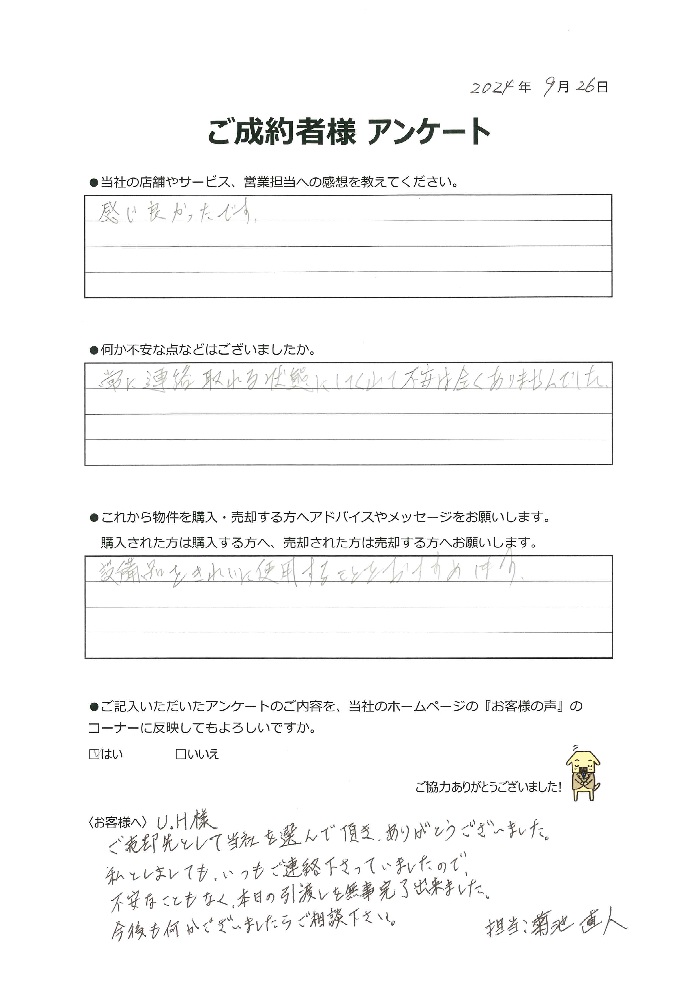 2024年 9月 26日
ご成約者様 アンケート
●当社の店舗やサービス、営業担当への感想を教えてください。
感じ良かったです。
●何か不安な点などはございましたか。
常に連絡取れる状態にしてくれて不安は全くありませんでした。
●これから物件を購入・売却する方へアドバイスやメッセージをお願いします。
購入された方は購入する方へ、売却された方は売却する方へお願いします。
設備品をきれいに使用することをおすすめします。
●ご記入いただいたアンケートのご内容を、当社のホームページの『お客様の声』の
コーナーに反映してもよろしいですか。
☑はい □いいえ
ご協力ありがとうございました!
〈お客様へ〉 U.H様
ご売却先として当社を選んで頂き、ありがとうございました。
私としましても、いつもご連絡下さっていましたので、
不安なこともなく、本日の引渡しを無事完了出来ました。
今後も何かございましたらご相談下さい。
担当:菊池 直人